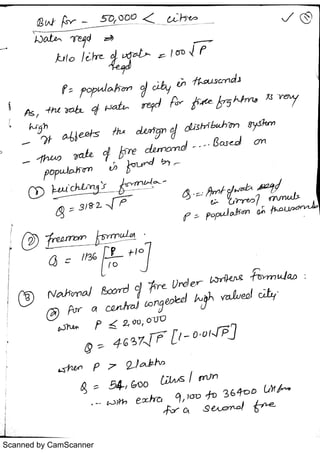 But for - 50,000 < cities
Water reqd ⇒
kilo litre of water reqd = 100 √P
P = population of city in thousands
As, the rate of water reqd for fire fighting is very high
- It affects the design of distribution system
- thus rate of fire demand .... Based on
population is found by -
① kuichling's formula -
Q = 3182 √P
Q = Amt of water reqd
in litres / minute
P = population in thousands
② freeman formula .
Q = 1136 [P/10 + 10]
③ National Board of Fire Under writers formulae :
ⓐ For a central congested high valued city:
when P ≤ 2,00,000
Q = 4637√P [1 - 0.01√P]
when P > 2 lakhs
Q = 54,600 litres / min
... with extra 9,100 to 36400 lit/min
for a second fire
Scanned by CamScanner